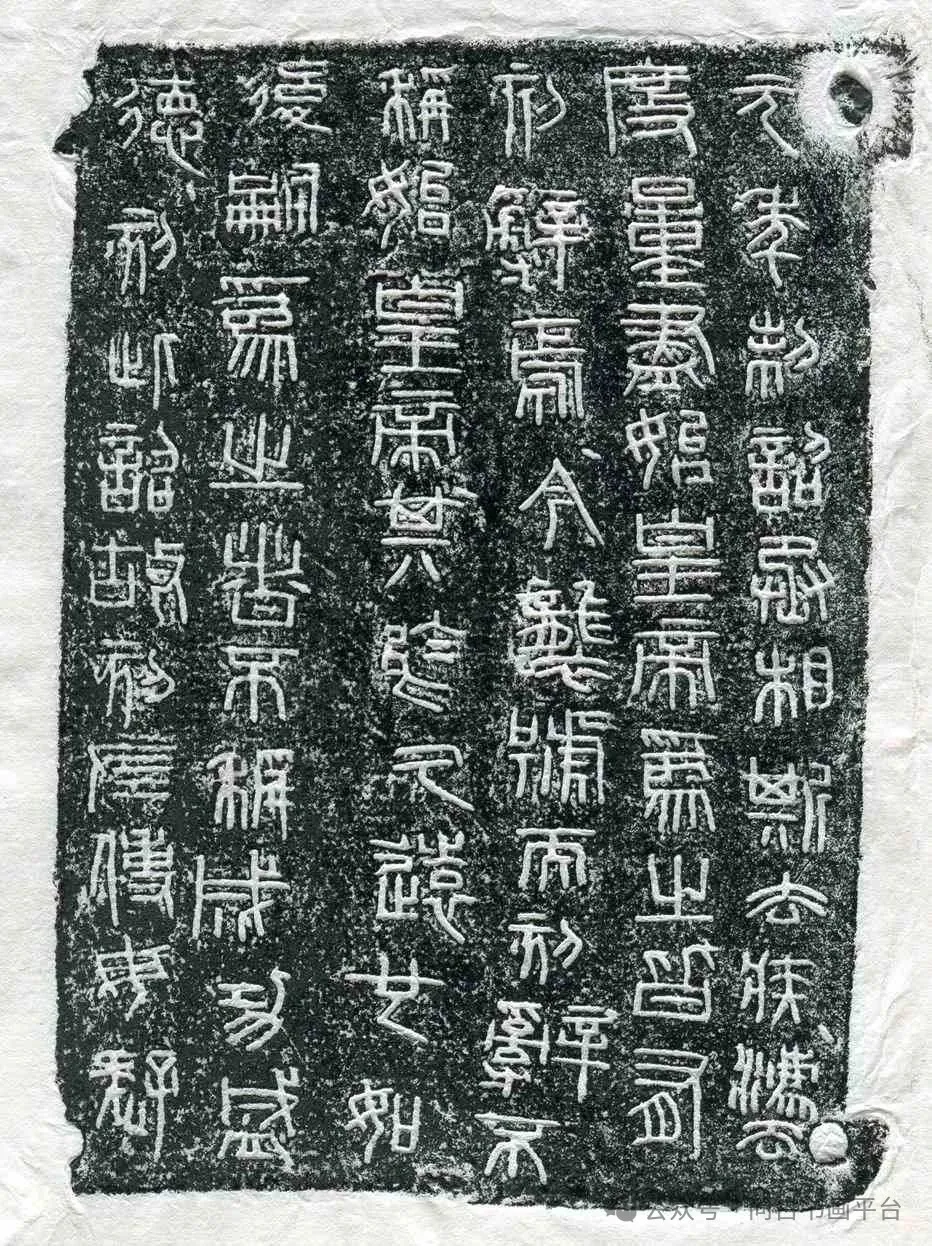 元年制詔丞相斯去疾灋
度量盡始皇帝爲之皆有
刻辭焉今襲號而刻辭不
稱始皇帝其於久遠也如
後嗣爲之者不稱成功盛
德刻此詔故刻左使毋疑
公众号 · 问古书画平台